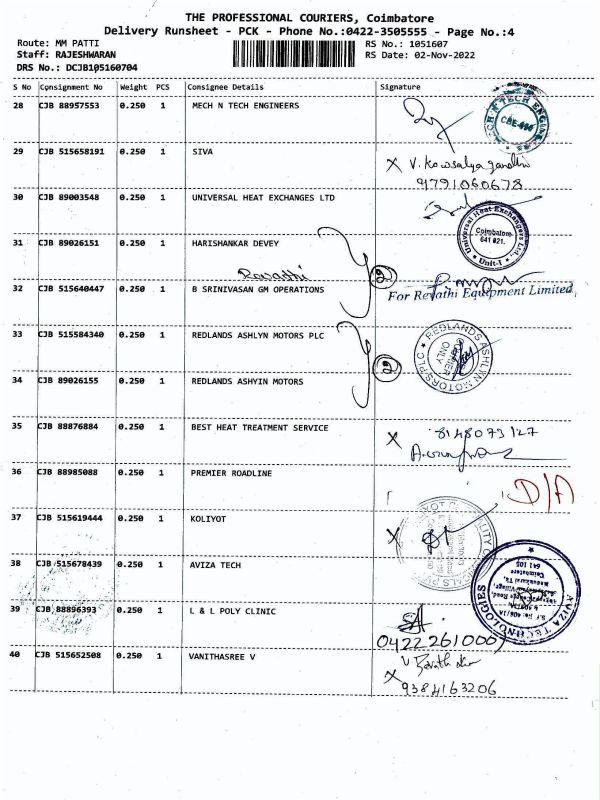 THE PROFESSIONAL COURIERS, Coimbatore
Delivery Runsheet - PCK - Phone No.:0422-3505555 - Page No.:4
Route: MM PATTI
RS No.: 1051607
Staff: RAJESHWARAN
RS Date: 02-Nov-2022
DRS No.: DCJB105160704
S No Consignment No Weight PCS Consignee Details Signature
28 CJB 88957553 0.250 1 MECH N TECH ENGINEERS
CBE-
29 CJB 515658191 0.250 1 SIVA
X V. Kowsalya gandhi
9791060678
30 CJB 89003548 0.250 1 UNIVERSAL HEAT EXCHANGES LTD
Universal Heat Exchangers Ltd.,
Coimbatore
641 021.
Unit-I
31 CJB 89026151 0.250 1 HARISHANKAR DEVEY
Revathi
32 CJB 515640447 0.250 1 B SRINIVASAN GM OPERATIONS
2
For Revathi Equipment Limited,
33 CJB 515584340 0.250 1 REDLANDS ASHLYN MOTORS PLC
REDLANDS ASHLYN MOTORS PLC
COURIER
ONLY
2
34 CJB 89026155 0.250 1 REDLANDS ASHYIN MOTORS
35 CJB 88876884 0.250 1 BEST HEAT TREATMENT SERVICE
X 8148073127
36 CJB 88985088 0.250 1 PREMIER ROADLINE
D/A
37 CJB 515619444 0.250 1 KOLIYOT
X
38 CJB 515678439 0.250 1 AVIZA TECH
AVIZA TECHNOLOGIES
Coimbatore
641 105
39 CJB 88896393 0.250 1 L & L POLY CLINIC
04222610007
40 CJB 515652508 0.250 1 VANITHASREE V
X
9384163206